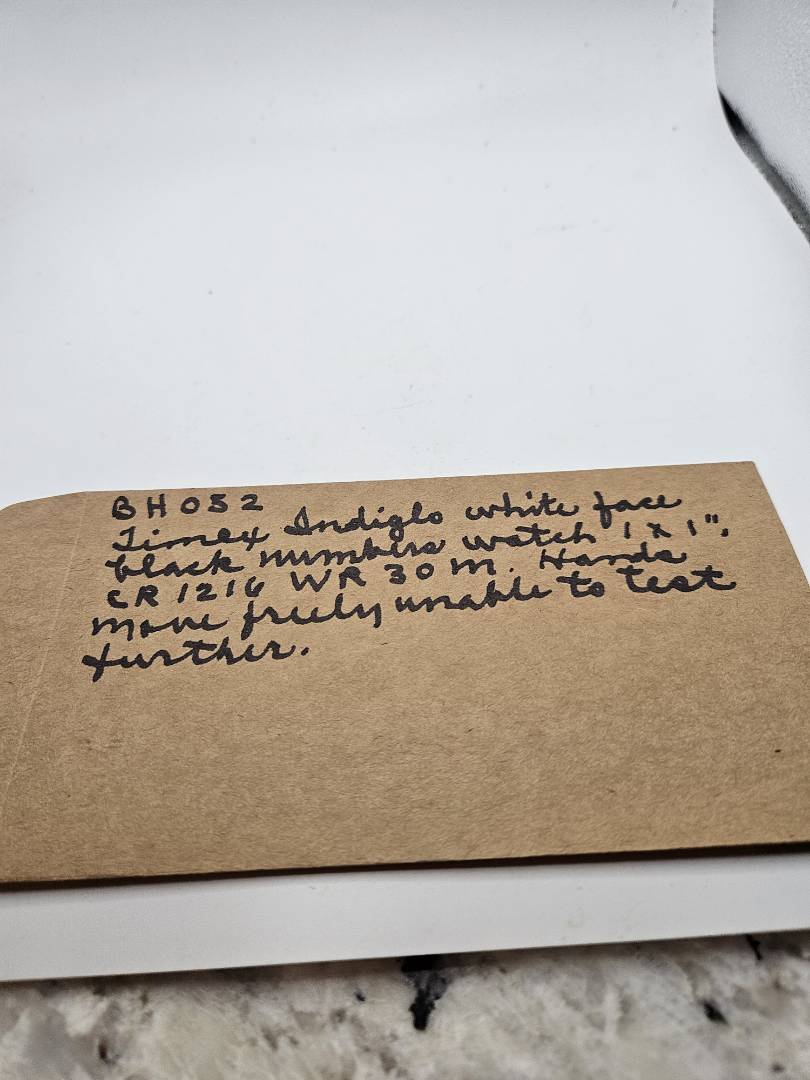 BH052
Timex Indiglo white face
black numbers watch 1 x 1",
CR 1216 WR 30 m. Hands
move freely unable to test
further.